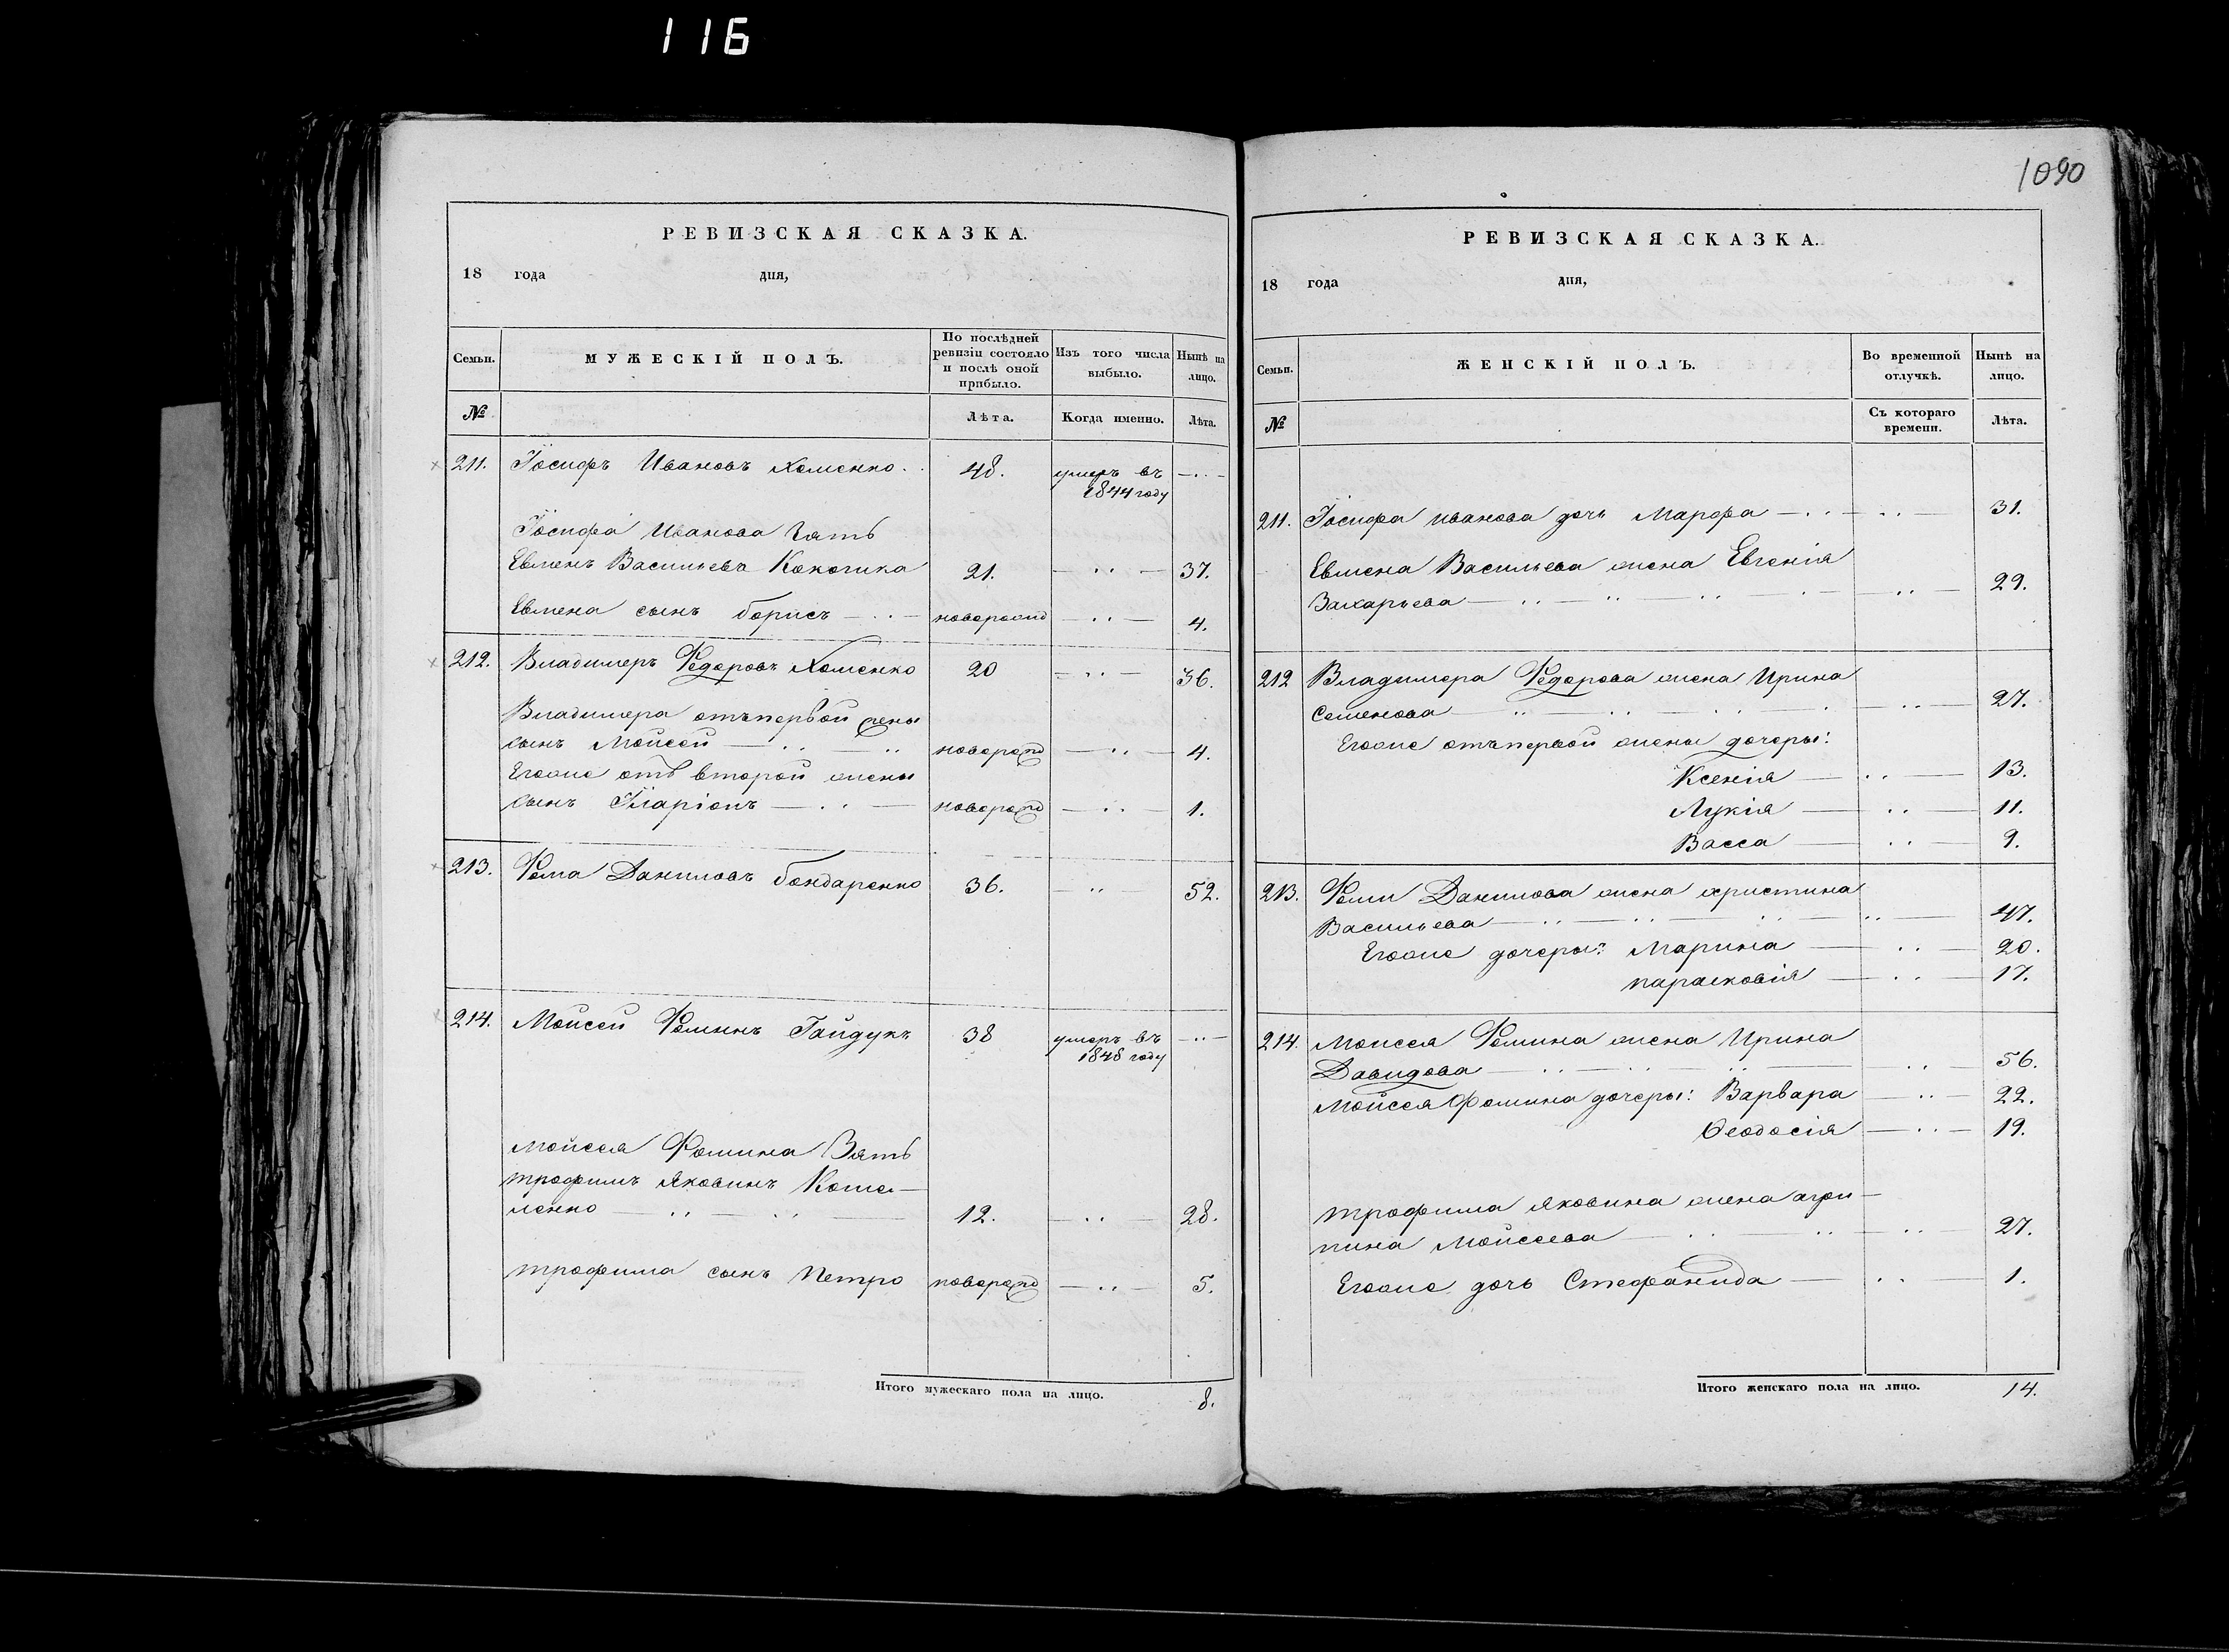 116
1090
РЕВИЗСКАЯ СКАЗКА.
18 года дня,
Семьи. МУЖЕСКІЙ ПОЛЪ. По послѣдней ревизіи состояло и послѣ оной прибыло. Изъ того числа выбыло. Нынѣ на лицо.
№ Лѣта. Когда именно. Лѣта.
211. Іосифъ Ивановъ Хоменко. 48. умеръ въ
1844 году
Іосифа Иванова Зять
Евменъ Васильевъ 21. 37.
Евмена сынъ борисъ новорожд 4.
212. Владимеръ Федоровъ Хоменко 20 36.
Владимера отъпервой жены
сынъ Мойсей новорожд 4.
Егоже отъ второй жены
сынъ Іларіонъ новорожд 1.
213. Фома Даниловъ бондаренко 36. 52.
214. Мойсей Фоминъ Гайдукъ 38 умеръ въ
1848 году
Мойсея Фомина Зять
трофимъ Яковинъ
ленко 12. 28.
трофима сынъ Петро новорожд 5.
Итого мужескаго пола на лицо. 8.
РЕВИЗСКАЯ СКАЗКА.
18 года дня,
Семьи. ЖЕНСКІЙ ПОЛЪ. Во временной отлучкѣ. Нынѣ на лицо.
№ Съ котораго времени. Лѣта.
211. Іосифа иванова дочь Марфа 31.
Евмена Васильева жена Евгенія
Захарьева 29.
212 Владимера Федорова жена Ирина
Семенова 27.
Егоже отъпервой жены дочеры:
Ксенія 13.
Лукія 11.
Васса 9.
213. Фомы Данилова жена христина
Васильева 47.
Егоже дочеры: Марина 20.
парасковія 17.
214. Моисея Фомина жена Ирина
Давидова 56.
Мойсея Фомина дочеры: Варвара 22.
Ѳеодосія 19.
трофима Яковина жена агри-
пина Мойсеева 27.
Егоже дочь Стефанида 1.
Итого женскаго пола на лицо. 14.